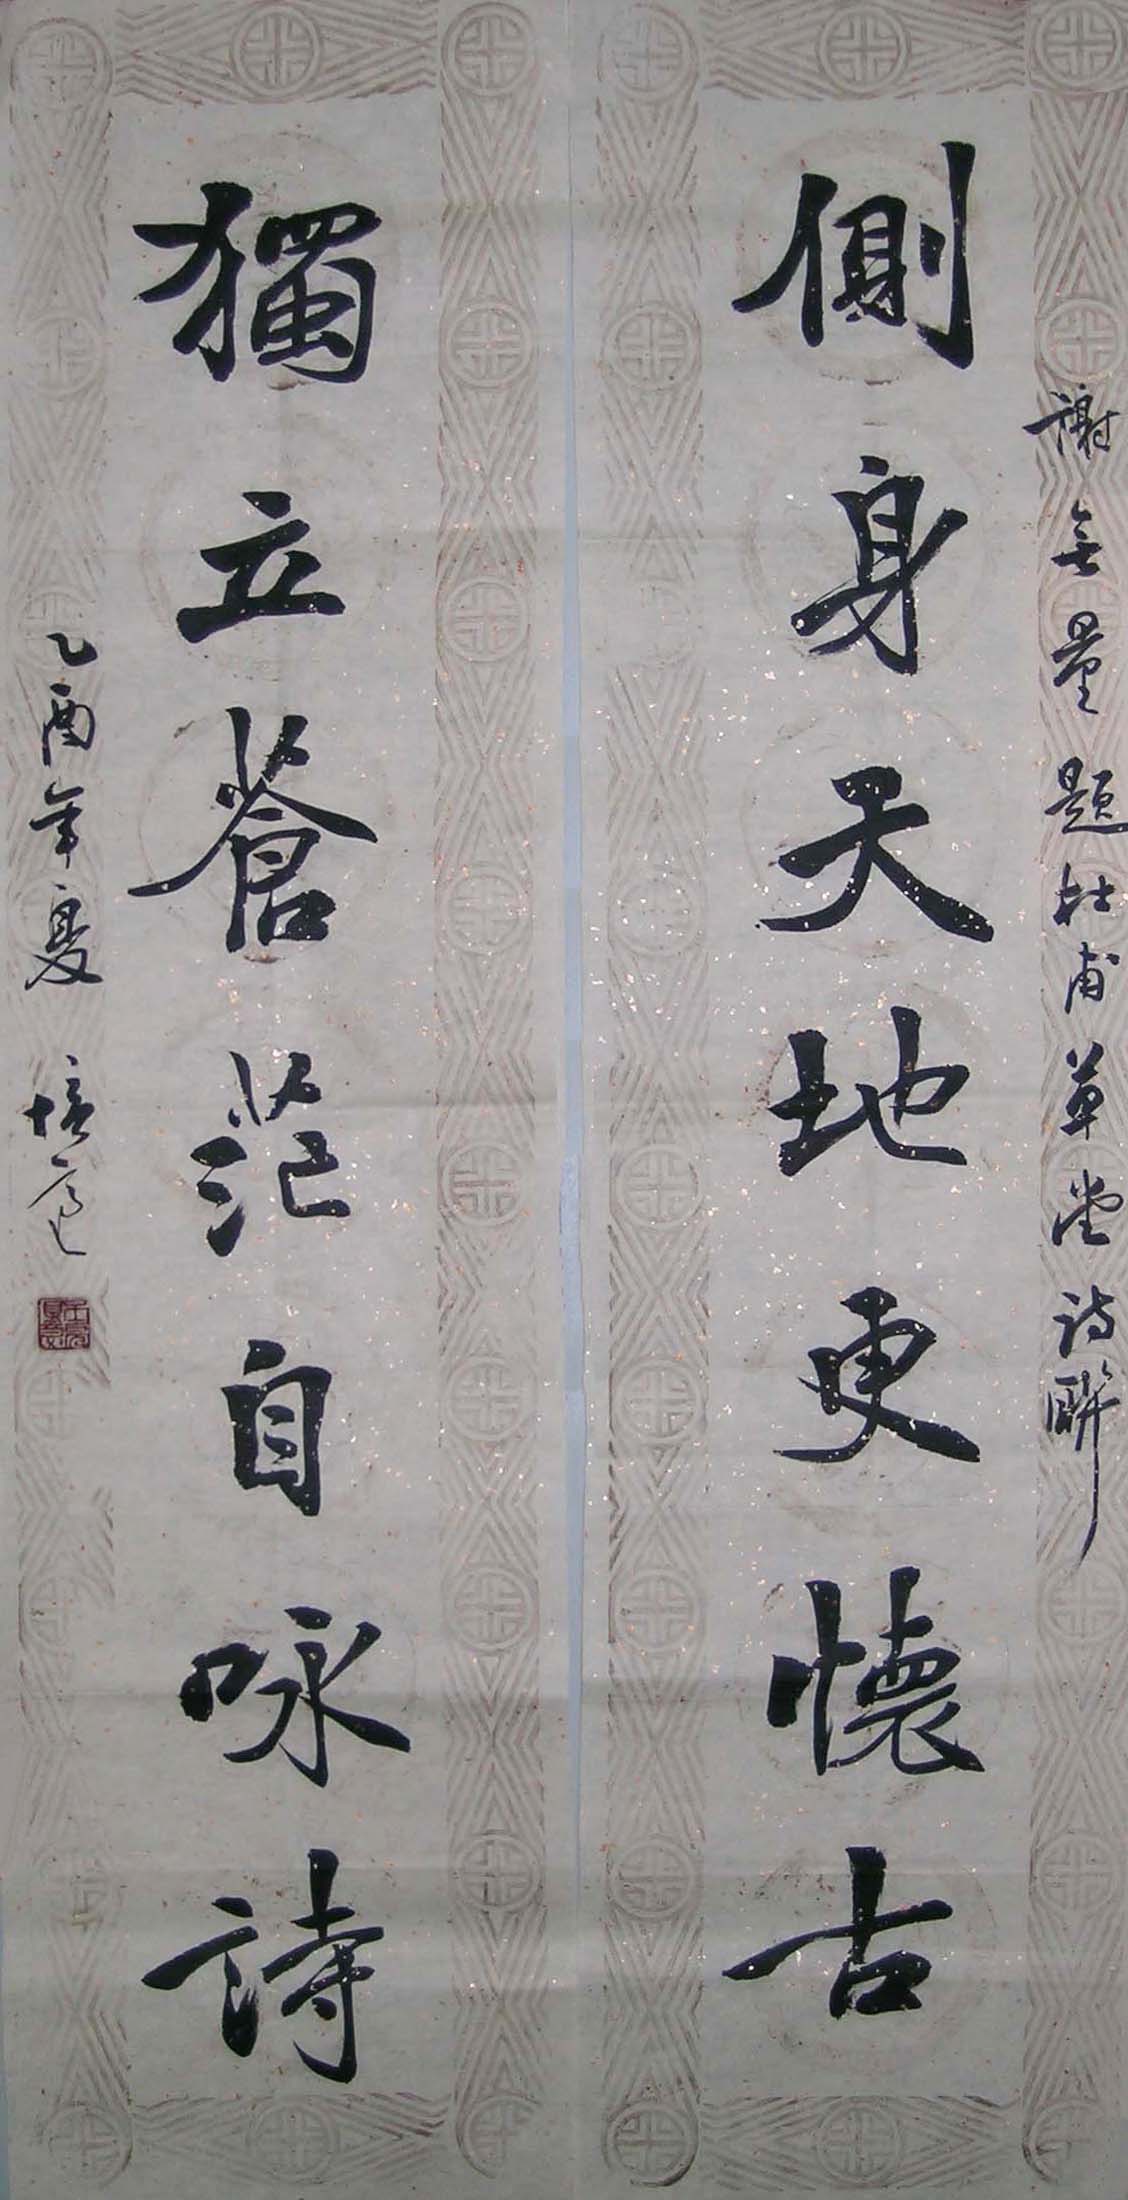 謝无量題杜甫草堂詩聯
側身天地更懷古
獨立蒼茫自咏詩
乙酉年夏 培